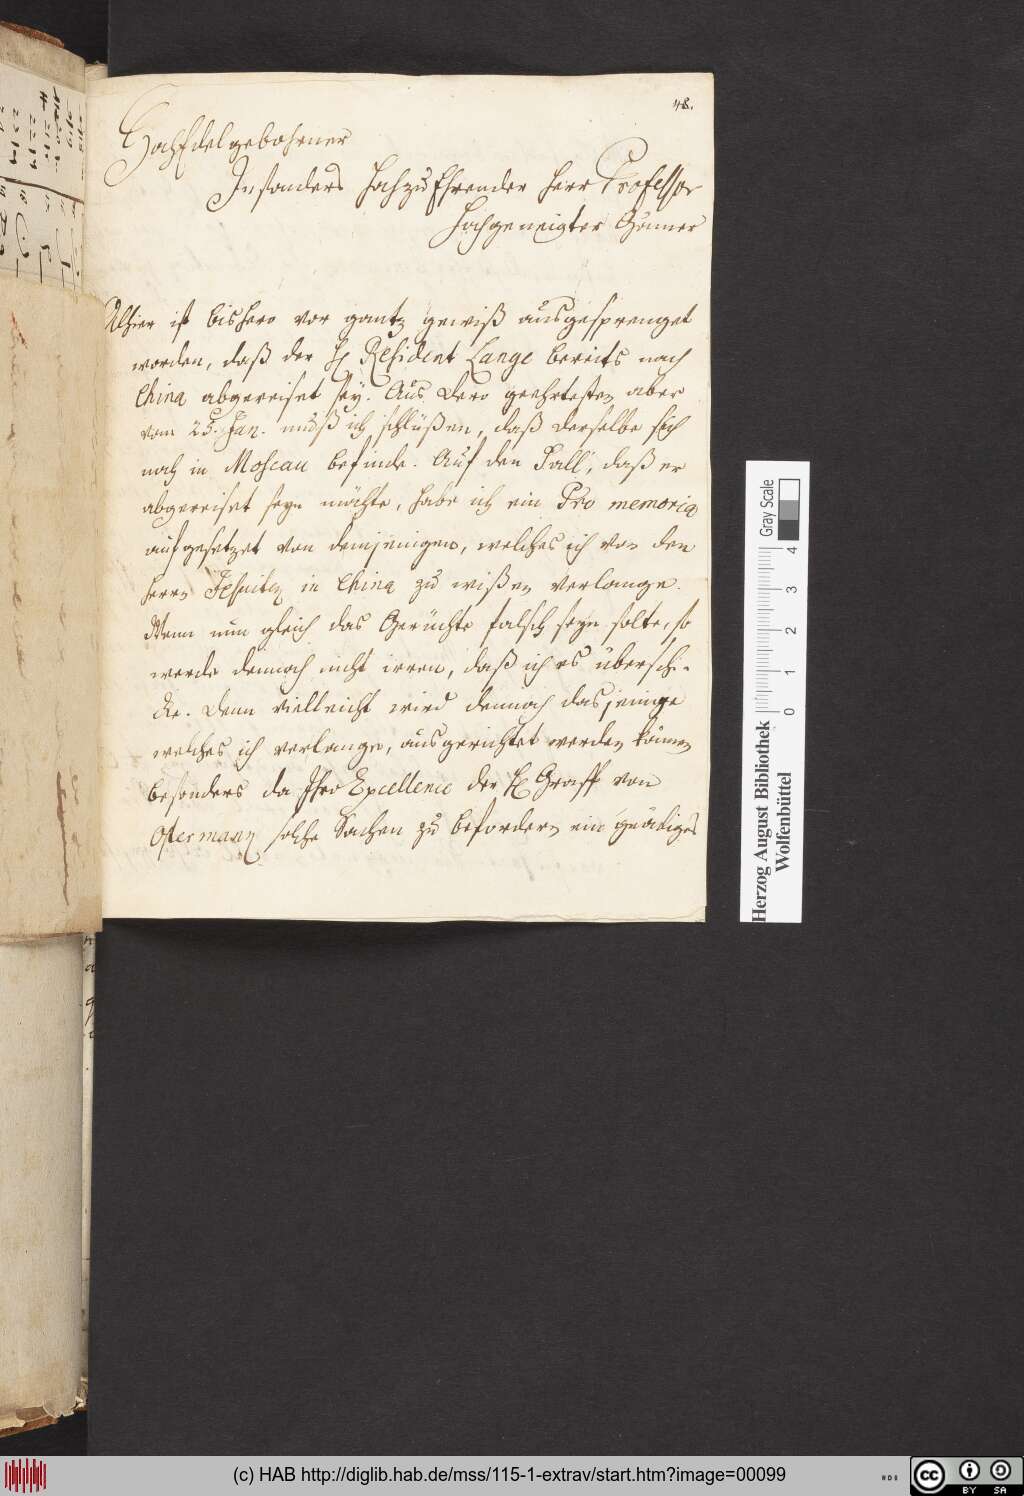 48.
HochEdelgebohrner
Insonders HochzuEhrender Herr Professor
Hochgeneigter Gönner
Alhier ist bishero vor gantz gewiß ausgesprenget
worden, daß der H Resident Lange bereits nach
China abgereiset sey. Aus Dero geehrtesten aber
vom 25. Jan. muß ich schlüßen, daß derselbe sich
noch in Moscau befinde. Auf den Fall, daß er
abgereiset seyn möchte, habe ich ein Pro memoria
aufgesetzet von demjenigen, welches ich von den
Herrn Jesuiten in China zu wißen verlange.
Wenn nun gleich das Gerüchte falsch seyn solte, so
werde dennoch nicht irren, daß ich es überschi-
cke. Denn vielleicht wird dennoch dasjenige
welches ich verlange, ausgerichtet werden können
besonders da Ihro Excellence der H Graff von
Ostermann solche Sachen zu befordern ein gnädiges
Gray Scale
0 1 2 3 4
Herzog August Bibliothek
Wolfenbüttel
(c) HAB http://diglib.hab.de/mss/115-1-extrav/start.htm?image=00099
cc
BY SA